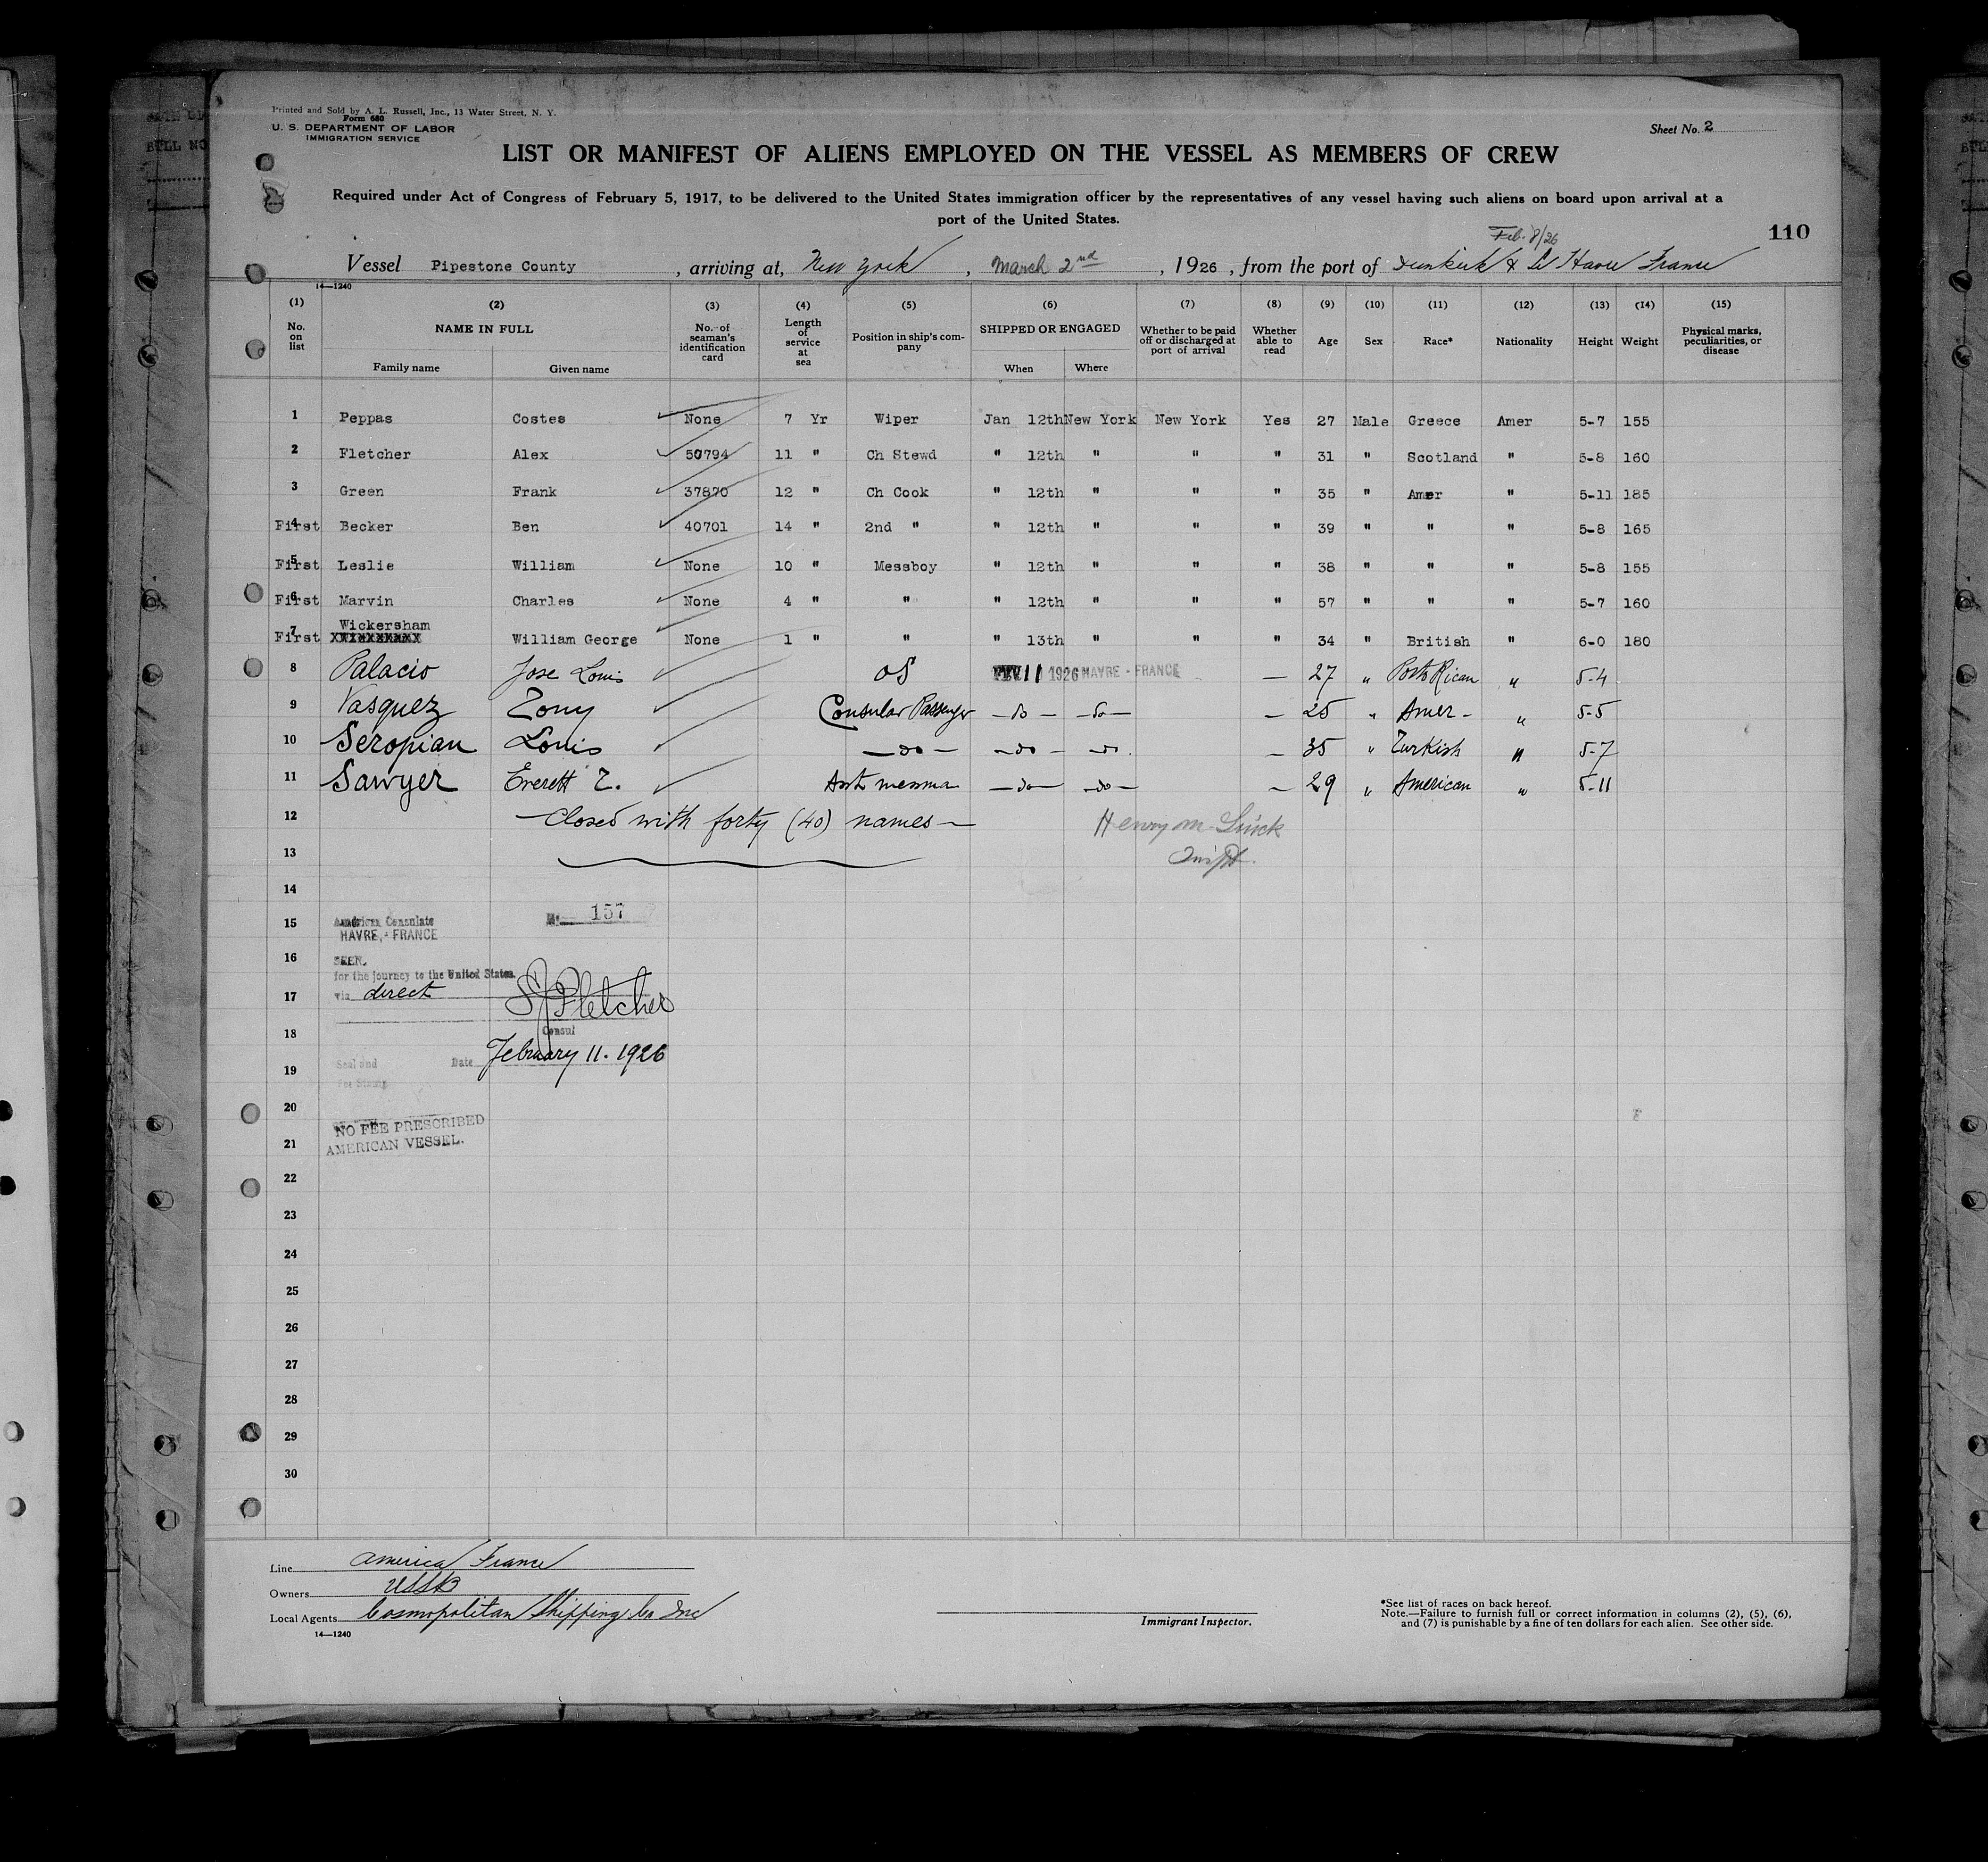 Printed and Sold by A. L. Russell, Inc., 13 Water Street, N. Y.
Form 680
U. S. DEPARTMENT OF LABOR
IMMIGRATION SERVICE
Sheet No. 2
LIST OR MANIFEST OF ALIENS EMPLOYED ON THE VESSEL AS MEMBERS OF CREW
Required under Act of Congress of February 5, 1917, to be delivered to the United States immigration officer by the representatives of any vessel having such aliens on board upon arrival at a
port of the United States.
Feb. 8/26
110
Vessel Pipestone County , arriving at, New York , March 2nd , 1926 , from the port of Dunkirk & Le Havre France
14—1240
(1) (2) (3) (4) (5) (6) (7) (8) (9) (10) (11) (12) (13) (14) (15)
No. on list NAME IN FULL No. of seaman's identification card Length of service at sea Position in ship's company SHIPPED OR ENGAGED Whether to be paid off or discharged at port of arrival Whether able to read Age Sex Race* Nationality Height Weight Physical marks, peculiarities, or disease
Family name Given name When Where
1 Peppas Costes None 7 Yr Wiper Jan 12th New York New York Yes 27 Male Greece Amer 5-7 155
2 Fletcher Alex 50794 11 " Ch Stewd " 12th " " " 31 " Scotland " 5-8 160
3 Green Frank 37870 12 " Ch Cook " 12th " " " 35 " Amer " 5-11 185
4 First Becker Ben 40701 14 " 2nd " " 12th " " " 39 " " " 5-8 165
5 First Leslie William None 10 " Messboy " 12th " " " 38 " " " 5-8 155
6 First Marvin Charles None 4 " " " 12th " " " 57 " " " 5-7 160
7 First Wickersham William George None 1 " " " 13th " " " 34 " British " 6-0 180
8 Palacio Jose Louis OS 11 1926 HAVRE - FRANCE — 27 " Porto Rican " 5-4
9 Vasquez Tony Consular Passenger — do — — do — — 25 " Amer - " 5-5
10 Seropian Louis — do — — do — — do — — 35 " Turkish " 5-7
11 Sawyer Everett T. — do — — do — — 29 " American " 5-11
12 — Closed with forty (40) names — Henry M.
13
14
15 American Consulate No. 157
HAVRE, - FRANCE
16 SEEN.
for the journey to the United States.
17 via direct S J Fletcher
18 Consul
19 Seal and Date February 11. 1926
Fee Stamp
20
NO FEE PRESCRIBED
21 AMERICAN VESSEL.
22
23
24
25
26
27
28
29
30
Line America France
Owners USSB
Local Agents Cosmopolitan Shipping Co Inc
14—1240
Immigrant Inspector.
*See list of races on back hereof.
Note.—Failure to furnish full or correct information in columns (2), (5), (6),
and (7) is punishable by a fine of ten dollars for each alien. See other side.